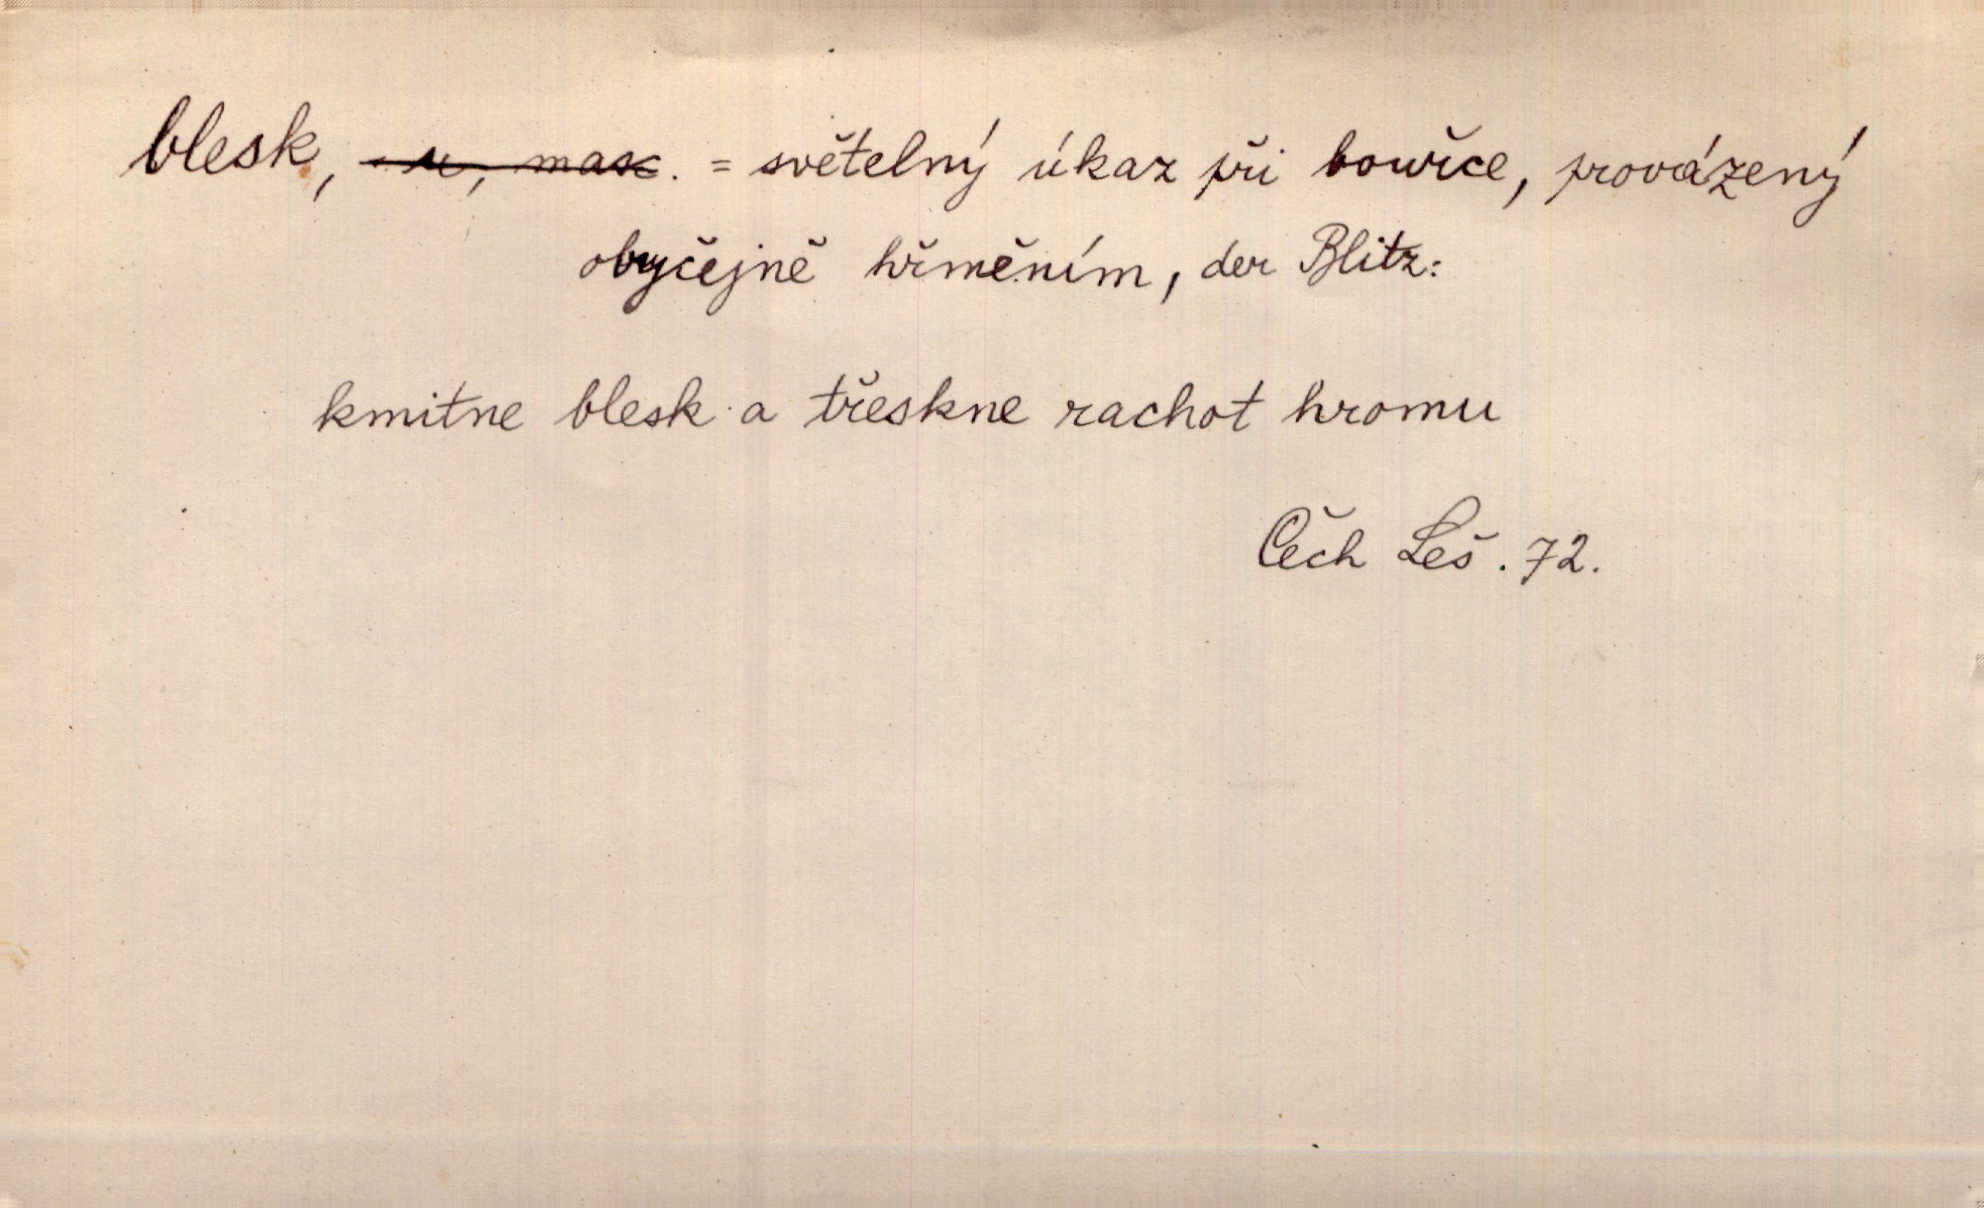 blesk, -u, mask. = světelný úkaz při bouřce, provázený
obyčejně hřměním, der Blitz:
kmitne blesk a třeskne rachot hromu
Čech Leš. 72.